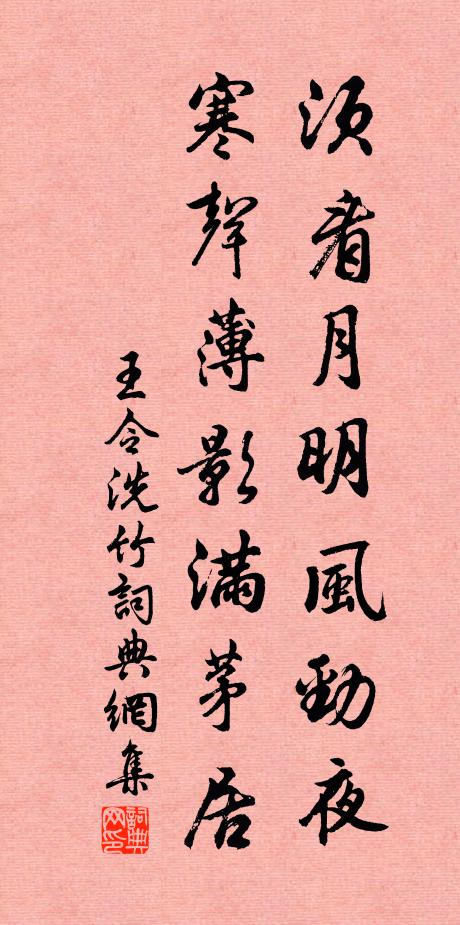 須看月明風勁夜
寒聲薄影滿茅居
王令洗竹詞典網集
詞典網印